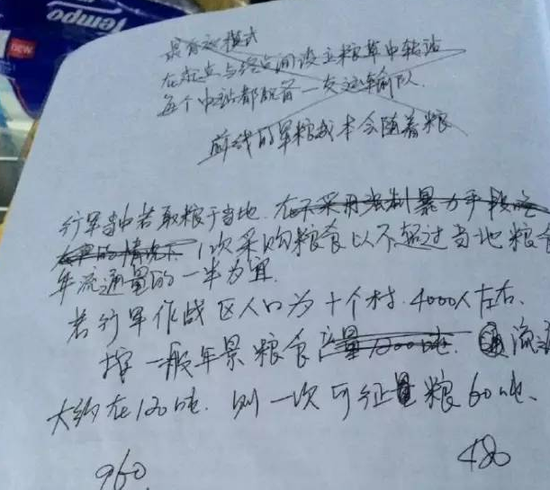 Tempo
NEW
具有 模式
在起点与终点间设立粮草中转站
每个中站都配置一支运输队.
前线的军粮成本会随着粮
行军当中若取粮于当地.在不采用强制暴力手段
的情况下 1次采购粮食以不超过当地粮食
年流通量的一半为宜.
若行军作战区人口为十个村.4000人左右.
按一般年景粮食产量1200吨. 流通
大约在120吨.则一次可征量粮60吨.
960
480